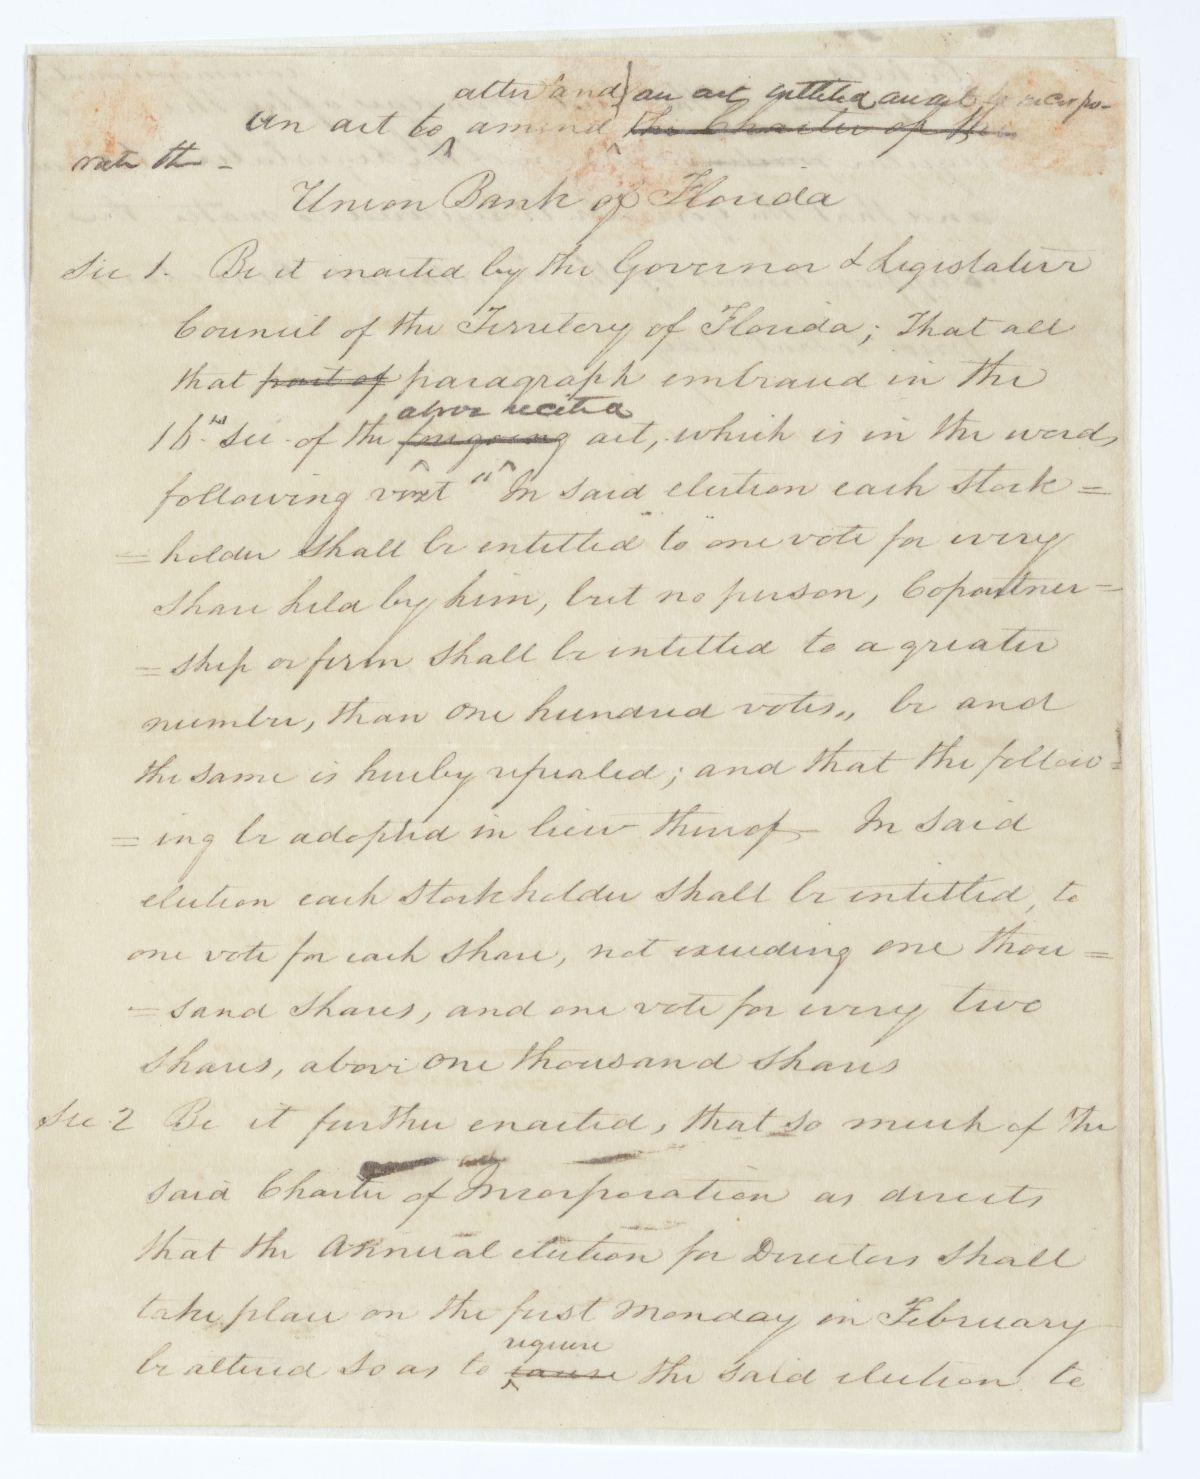 alter and an act entitled an act to incorpo-
An act to amend the Charter of the
rate the -
Union Bank of Florida
Sec 1. Be it enacted by the Governor & Legislative
Council of the Territory of Florida; That all
that part of paragraph embraced in the
above recited
16th Sec. of the foregoing act, which is in the words
following " In said election each Stock =
= holder shall be entitled to one vote for every
Share held by him, but no person, Copartner =
= ship or firm shall be entitled to a greater
number, than one hundred votes,, be and
the same is hereby repealed; and that the follow =
= ing be adopted in lieu thereof - In said
election each Stockholder shall be entitled, to
one vote for each Share, not exceeding one thou =
= sand Shares, and one vote for every two
Shares, above one thousand Shares
Sec 2 Be it further enacted, that so much of the
said Charter of Incorporation as directs
that the Annual election for Directors shall
take place on the first Monday in February
require
be altered so as to cause the said election to